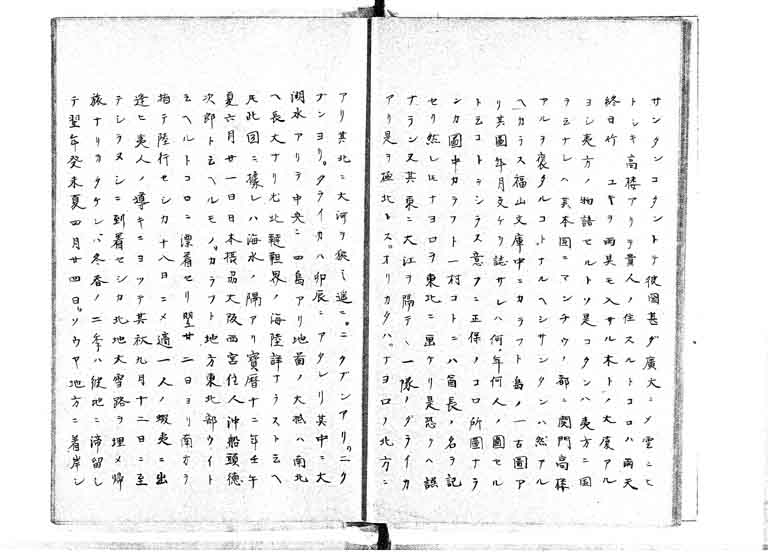 サンタンコタントテ彼国甚ダ廣大ニメ雲ニヒ
トシキ高楼アリテ貴人ノ住スルトコロハ雨天
終日行 ユキテ雨具モ入サル木トノ大廈アル
ヨシ夷方 物語セルトソ是コタンハ夷方ニ国
ヲ云ナレハ 其本国ニマンチウノ都ニ関門高楼
アルヲ褒タルコトナルヘシサンタンハ然アル
ヘカラス福山文庫中ニカラフト島ノ一古圖ア
リ其圖年月文ケリ誌サレハ何年何人ノ圖セル
ト云コトヲシラス意フニ正保ノコロ所圖ナラ
ンカ圖中カラフト一村コトニハ酋長ノ名ヲ記
セリ然レ𪜈ナヨロヲ東北ニ画ケリ是恐クハ誤
ナラン又其東ニ大江ヲ隔テ丶一隊ノグライカ
アリ是ヲ極北トス゛オリカタハ゛ナヨロノ北方ニ
アリ其北ニ大河ヲ挟ミ遥ニ゛ニクブンアリ゛ニク
ブンヨリ゛クライカハ卯辰ニアタレリ其中ニ大
湖水アリテ中央ニ四島アリ地苗ノ大抵ハ南北
ヘ長大ナリ尤北韃靼界ノ海陸詳ナラスト云ヘ
𪜈此圖ニ據レハ海水ノ隔アリ寳暦十二年壬午
夏六月廿一日日本摂州大阪西宮住人沖船頭徳
次郎ト云ヘルモノ゛カラフト地方東北部クイト
云ヘルトコロニ漂着セリ翌廿二日ヨリ南方ヲ
指テ陸行セシカ十八日ニメ適一人ノ蝦夷ニ出
逢ヒ夷人ノ導キニヨツテ其秋九月十二日ニ至
テシラヌシニ到着セシカ北地大雪路ヲ埋メ帰
旅ナリカタケレバ冬春ノ二季ハ彼地ニ滞留し
テ翌年癸未夏四月廿四日゛ソウヤ地方ニ着岸シ